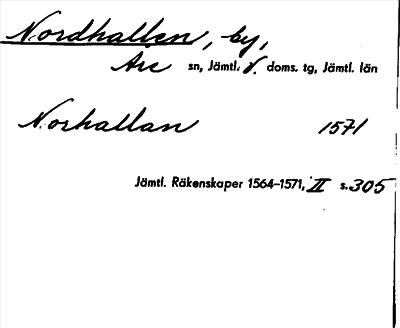 Nordhallen, by,
Åre sn, Jämtl. V. doms. tg, Jämtl. län
Norhallan 1571
Jämtl. Räkenskaper 1564-1571, II s. 305